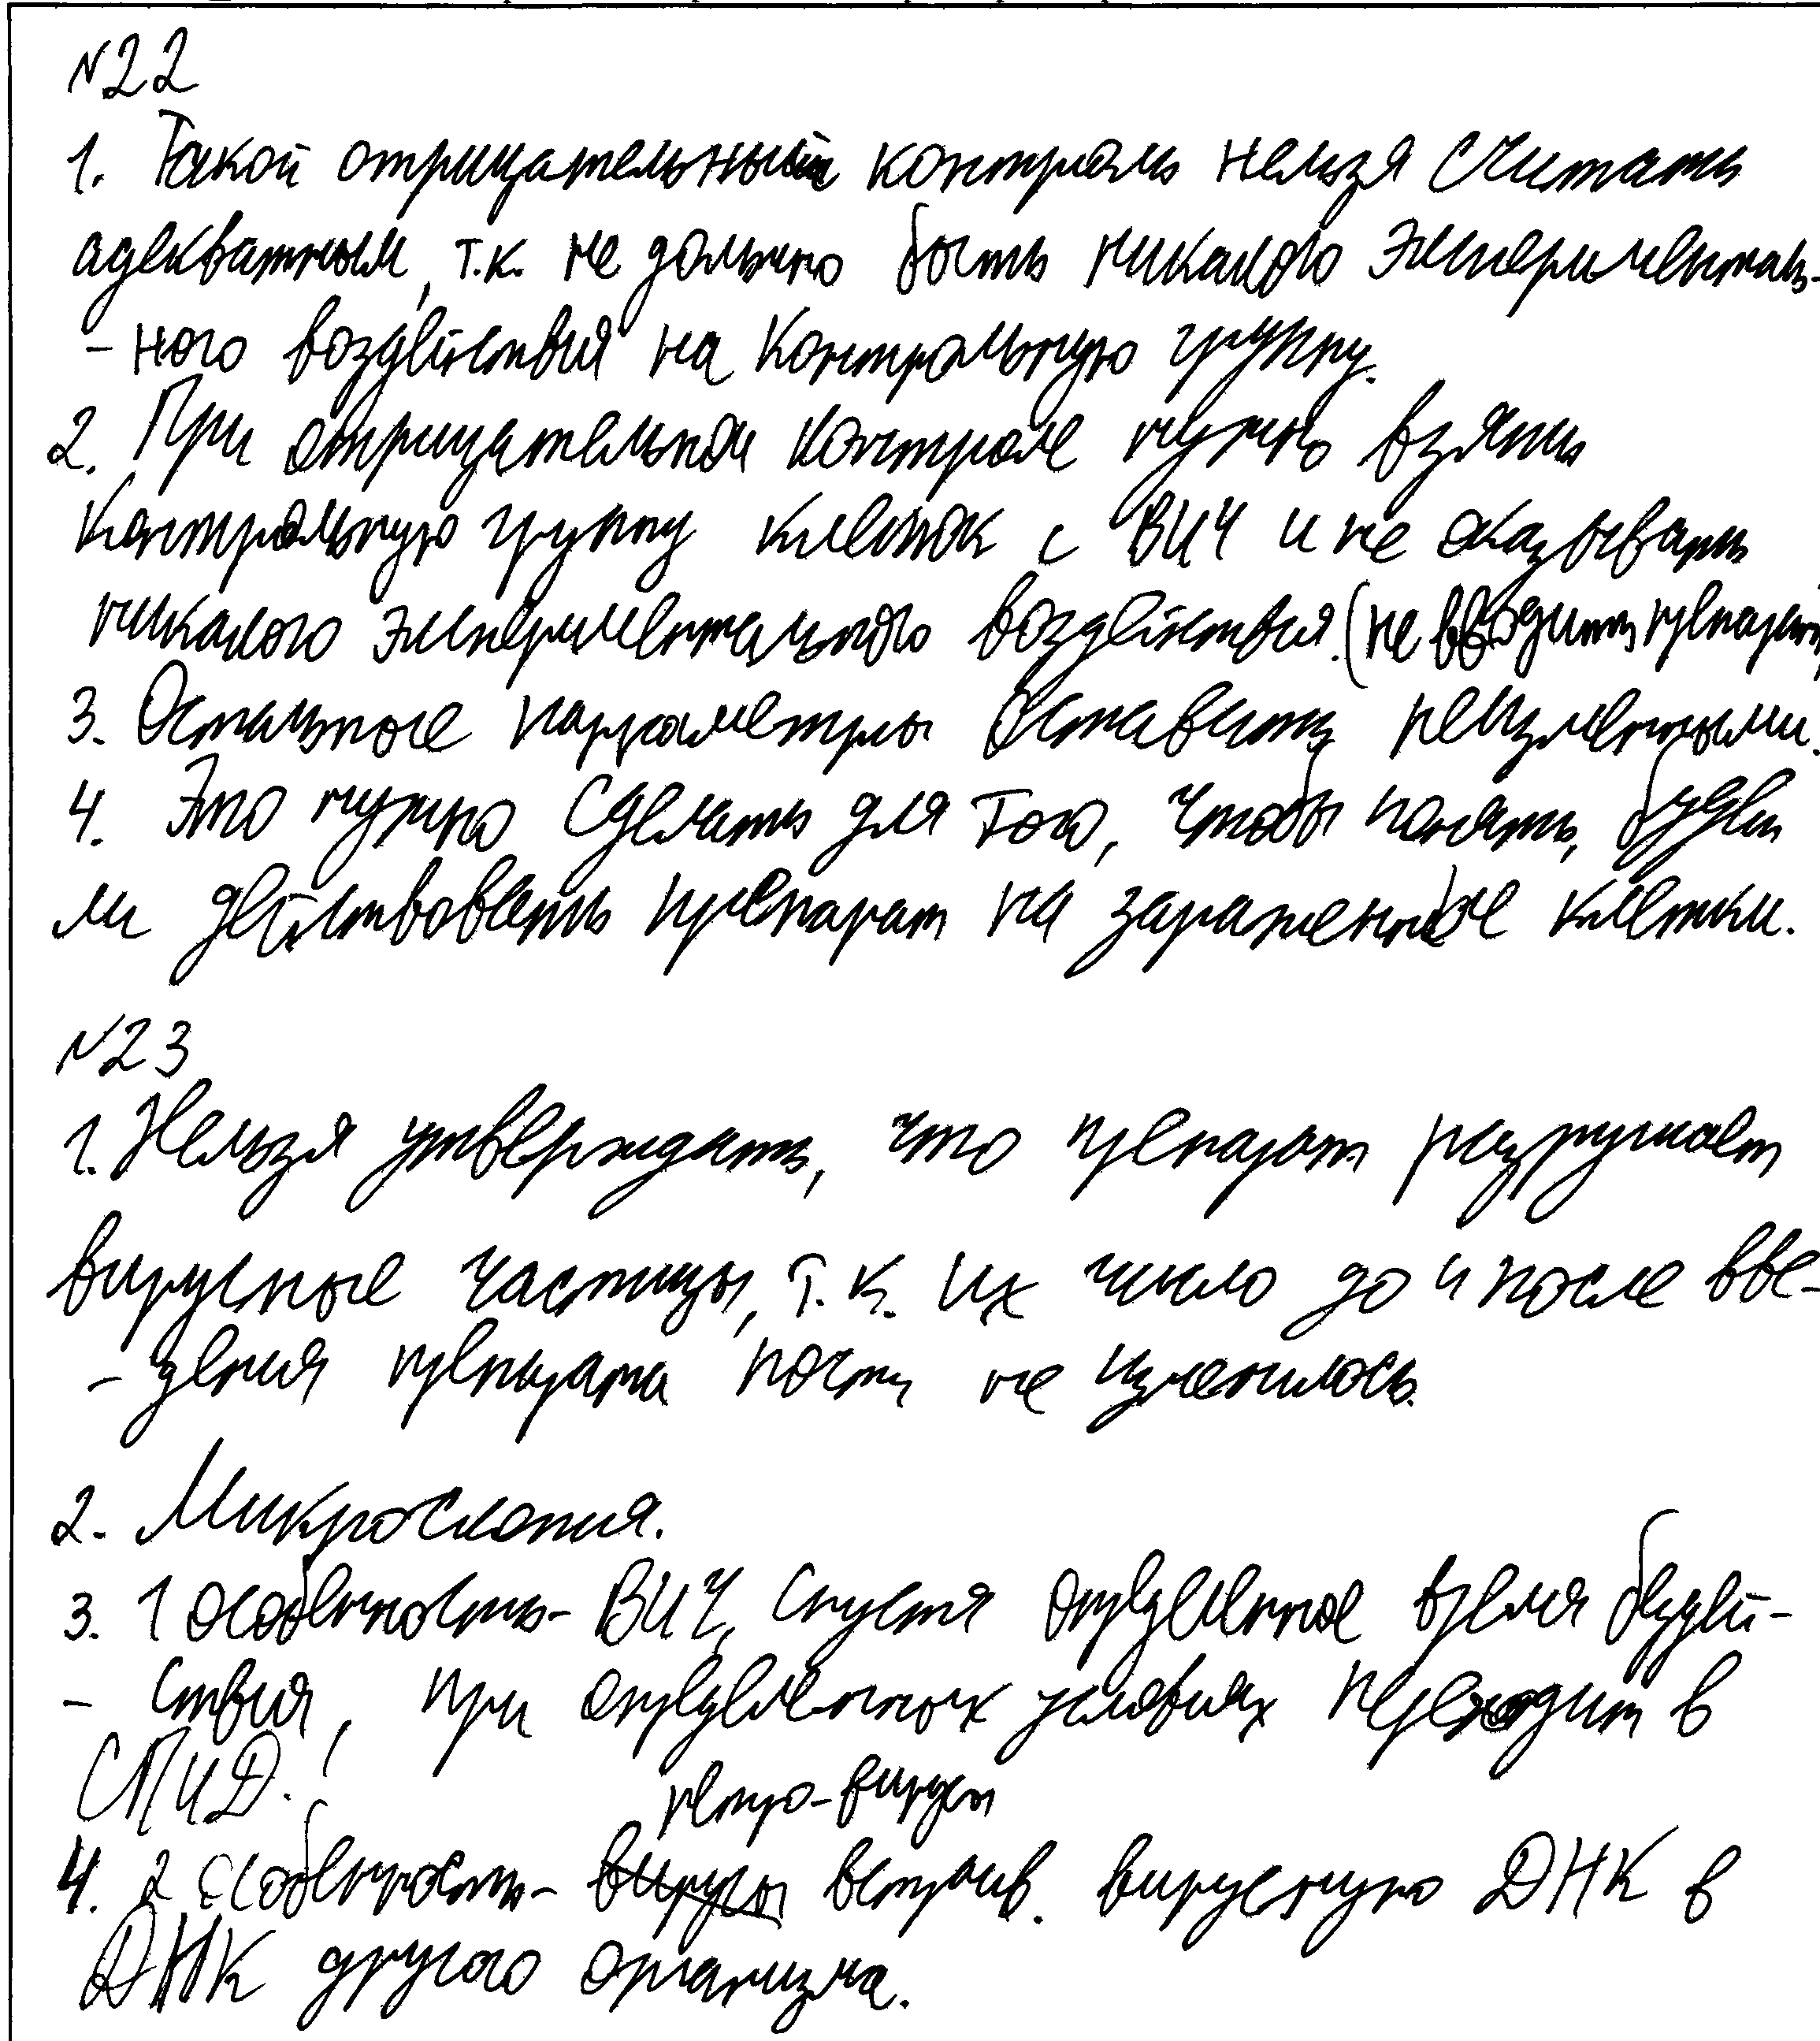 №22
1. Такой отрицательный контроль нельзя считать
адекватным, т.к. не должно быть никакого эксперименталь-
- ного воздействия на контрольную группу.
2. При отрицательном контроле нужно взять
контрольную группу клеток с ВИЧ и не оказывать
никакого экспериментального воздействия. (не вводить препарат)
3. Остальные параметры оставить неизменными.
4. Это нужно сделать для того, чтобы понять, будет
ли действовать препарат на зараженные клетки.
№23
1. Нельзя утверждать, что препарат разрушает
вирусные частицы, т.к. их число до и после вве-
- дения препарата почти не изменилось.
2. Микроскопия.
3. 1 особенность- ВИЧ, спустя определенное время бездей-
- ствия, при определенных условиях переходит в
СПИД.
ретро-вирусы
4. 2 особенность- вирусы встраив. вирусную ДНК в
ДНК другого организма.